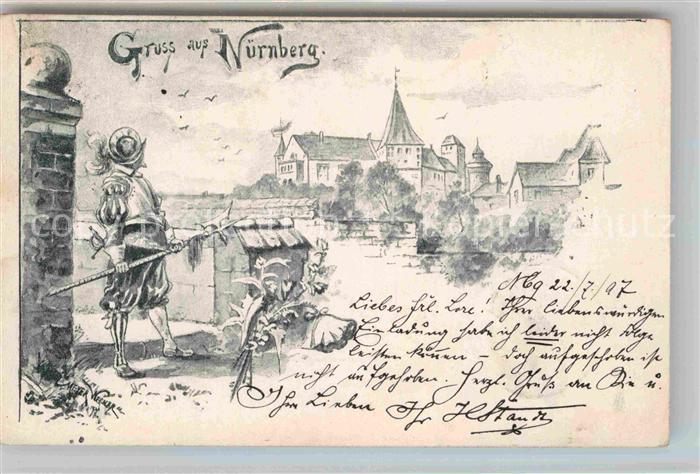 Gruss aus Nürnberg.
Nbg 22./7./97
Liebes Frl. Lore! Ihrer liebenswürdigen
Einladung habe ich leider nicht Folge
leisten können – doch aufgeschoben ist
nicht aufgehoben. Herzl. Gruß an Sie u.
Ihre Lieben Ihr